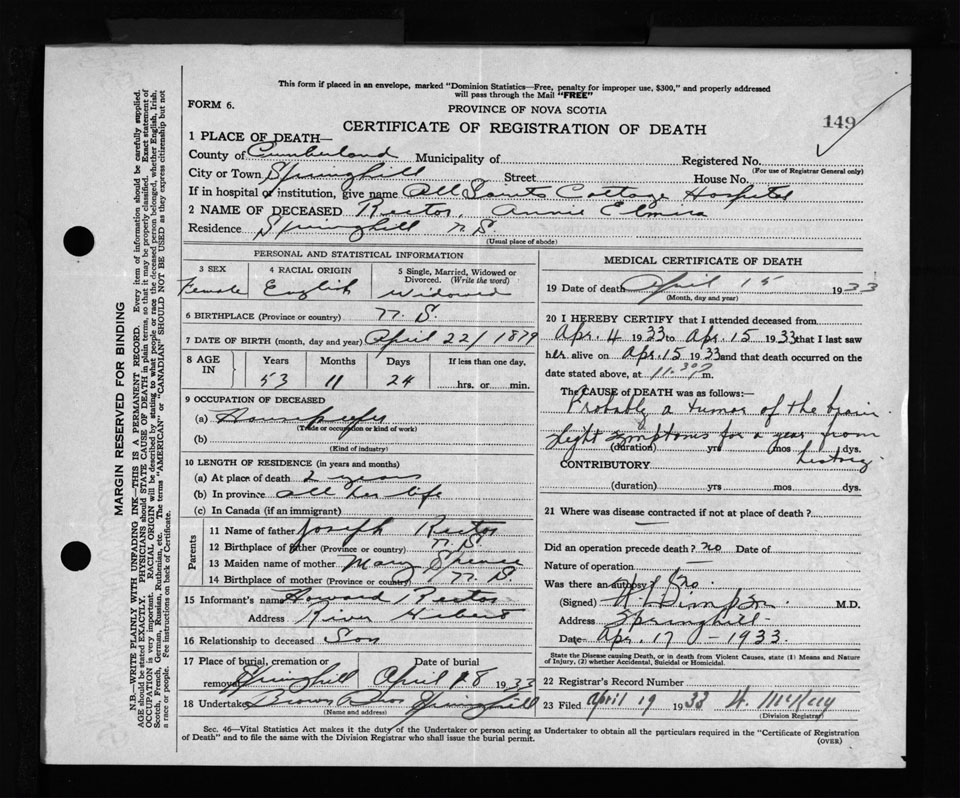 This form if placed in an envelope, marked "Dominion Statistics—Free, penalty for improper use, $300," and properly addressed
will pass through the Mail "FREE"
FORM 6.
PROVINCE OF NOVA SCOTIA
149
CERTIFICATE OF REGISTRATION OF DEATH
1 PLACE OF DEATH—
County of Cumberland Municipality of Registered No.
(For use of Registrar General only)
City or Town Springhill Street House No.
If in hospital or institution, give name All Saints Cottage Hospital
2 NAME OF DECEASED Rector, Annie Elmira
Residence Springhill N.S.
(Usual place of abode)
PERSONAL AND STATISTICAL INFORMATION
3 SEX
Female
4 RACIAL ORIGIN
English
5 Single, Married, Widowed or
Divorced. (Write the word)
Widowed
6 BIRTHPLACE (Province or country) N.S.
7 DATE OF BIRTH (month, day and year) April 22/1879
8 AGE
IN
Years Months Days If less than one day,
53 11 24 hrs. or min.
9 OCCUPATION OF DECEASED
(a) Housekeeper
(Trade or occupation or kind of work)
(b)
(Kind of industry)
10 LENGTH OF RESIDENCE (in years and months)
(a) At place of death 2 years
(b) In province all her life
(c) In Canada (if an immigrant)
Parents
11 Name of father Joseph Rector
12 Birthplace of father (Province or country) N.S.
13 Maiden name of mother Mary Spence
14 Birthplace of mother (Province or country) N.S.
15 Informant's name Howard Rector
Address River Hebert
16 Relationship to deceased Son
17 Place of burial, cremation or Date of burial
removal Springhill April 18 1933
18 Undertaker Brown Bros Springhill
(Name and address)
MEDICAL CERTIFICATE OF DEATH
19 Date of death April 15 1933
(Month, day and year)
20 I HEREBY CERTIFY that I attended deceased from
Apr. 4 1933 to Apr. 15 1933 that I last saw
her alive on Apr. 15 1933 and that death occurred on the
date stated above, at 11.30 P m.
The CAUSE OF DEATH was as follows:—
Probably a tumor of the brain.
slight symptoms for a year from
(duration) yrs mos dys.
history.
CONTRIBUTORY
(duration) yrs mos dys.
21 Where was disease contracted if not at place of death?
Did an operation precede death? no Date of
Nature of operation
Was there an autopsy? No.
(Signed) M.D.
Address Springhill
Date Apr. 17 - 1933.
State the Disease Causing Death, or in death from Violent Causes, state (1) Means and Nature
of Injury, (2) whether Accidental, Suicidal or Homicidal.
22 Registrar's Record Number
23 Filed April 19 1933
(Division Registrar)
Sec. 46—Vital Statistics Act makes it the duty of the Undertaker or person acting as Undertaker to obtain all the particulars required in the "Certificate of Registration
of Death" and to file the same with the Division Registrar who shall issue the burial permit.
(OVER)
MARGIN RESERVED FOR BINDING
N.B.—WRITE PLAINLY WITH UNFADING INK—THIS IS A PERMANENT RECORD. Every item of information should be carefully supplied.
AGE should be stated EXACTLY. PHYSICIANS should STATE CAUSE OF DEATH in plain terms, so that it may be properly classified. Exact statement of
OCCUPATION is very important. RACIAL ORIGIN will be described by stating to what people or race the deceased person belonged, whether English, Irish,
Scotch, French, German, Russian, Ruthenian, etc. The terms "AMERICAN" or "CANADIAN" SHOULD NOT BE USED as they express citizenship but not
a race or people. See instructions on back of Certificate.